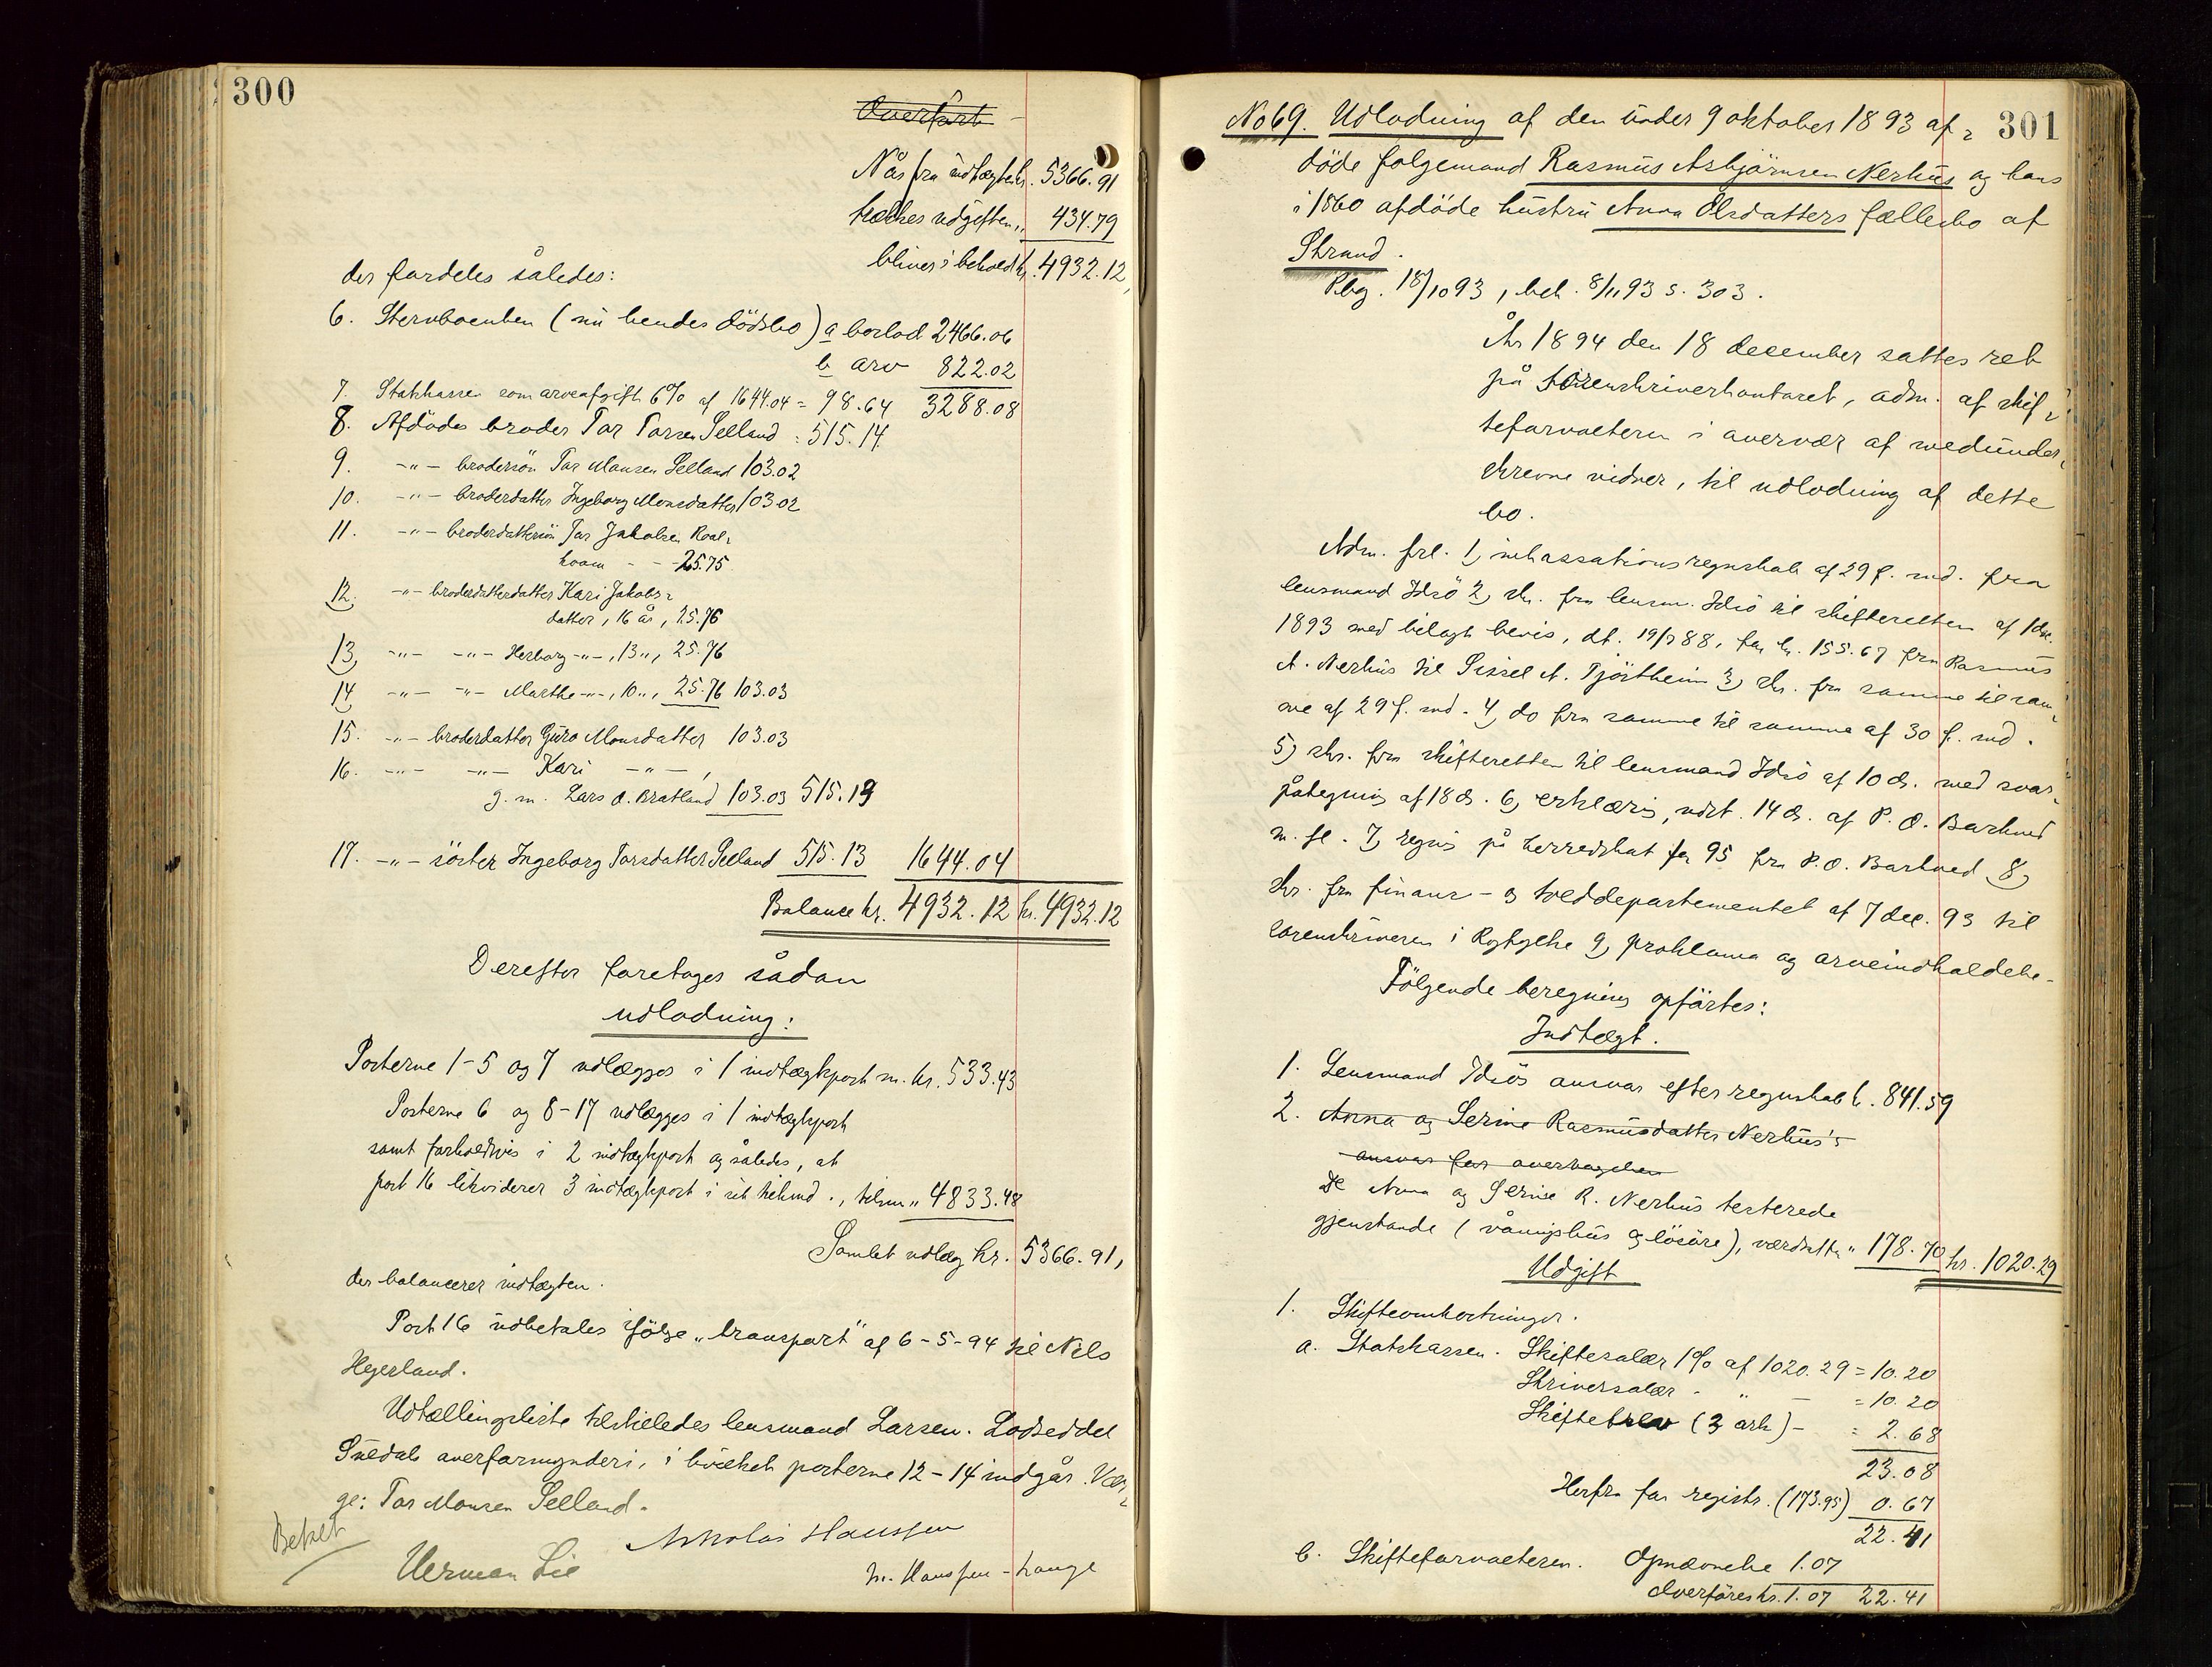 300
Overført
Når fra indtægten kr. 5366.91
trækkes udgiften „ 434.79
bliver i behold kr. 4932.12,
der fordeles således:
6. Stervboenken (nu hendes dödsbo) a boslod 2466.06
b arv 822.02
3288.08
7. Statskassen som arveafgift 6% af 1644.04 = 98.64
8. Afdödes broder Tor Torsen Selland = 515.14
9. -„- brodersön Tor Monsen Selland 103.02
10. -„- broderdatter Ingeborg Monsdatter 103.02
11. -„- broderdattersön Tor Jakobsen Roal-
kvam - - 25.75
12. -„- broderdatterdatter Kari Jakobs-
datter, 16 år, 25.76
13, -„- -„- Herborg -„-, 13 „, 25.76
14 -„- -„- Marthe -„-, 10 „, 25.76 103.03
15. -„- broderdatter Guro Monsdatter 103.03
16. -„- -„- Kari -„-,
g. m. Lars O. Bratland 103.03 515.13
17. -„- söster Ingeborg Torsdatter Selland 515.13 1644.04
Balance kr. 4932.12 kr. 4932.12
Derefter foretoges sådan
udlodning:
Posterne 1-5 og 7 udlægges i 1 indtægtspost m. kr. 533.43
Posterne 6 og 8-17 udlægges i 1 indtægtspost
samt forholdsvis i 2 indtægtspost og således, at
post 16 likviderer 3 indtægtspost i sit tilkomd., tilsm „ 4833.48
Samlet udlæg kr. 5366.91,
der balancerer indtægten.
Post 16 udbetales ifölge „transport" af 6-5-94 til Nils
Hegerland.
Udtællingsliste tilstilledes lensmand Larsen. Lodseddel
Suledals overformynderi, i hvilket posterne 12-14 indgår. Vær-
ge: Tor Monsen Selland.
Betalt
Nikolai Hanssen
Herman Lie
m. Hanssen-Hauge
301
No 69. Udlodning af den under 9 oktober 1893 af-
döde folgemand Rasmus Asbjörnsen Nerhus og hans
i 1860 afdöde hustru Anna Olsdatters fællesbo af
Strand.
Reg. 18/10 93, beh. 8/11 93 s. 303.
År 1894 den 18 december sattes ret
på sorenskriverkontoret, adm. af skif-
teforvalteren i overvær af medunder-
skrevne vidner, til udlodning af dette
bo.
Adm. frl. 1, inkassationsregnskab af 29 f. md. fra
lensmand Idsö 2, skr. fra lensm. Idsö til skifteretten af 1 dec.
1893 med bilagt bevis, dt. 19/7 88, for kr. 155.67 fra Rasmus
A. Nerhus til Sissel A. Tjöstheim 3, skr. fra samme til sam-
me af 29 f. md. 4, do fra samme til samme af 30 f. md.
5, skr. fra skifteretten til lensmand Idsö af 10 ds. med svar-
påtegning af 18 ds. 6, erklæring, udst. 14 ds. af P. O. Barkved
m. fl. 7, regning på herredskat for 95 fra P. O. Barkved 8,
skr. fra finans- og tolddepartementet af 7 dec. 93 til
sorenskriveren i Ryfylke 9, proklama og arveindkaldelse.
Fölgende beregning opförtes:
Indtægt.
1. Lensmand Idsös ansvar efter regnskab k. 841.59
2. Anna og Serine Rasmusdatter Nerhus's
ansvar for overtagelsen
De Anna og Serine R. Nerhus testerede
gjenstande (våningshus og lösöre), værdsatte „ 178.70 kr. 1020.29
Udgift
1. Skifteomkostninger.
a. Statskassen. Skiftesalær 1% af 1020.29 = 10.20
Skriversalær - „ - = 10.20
Skiftebrev (3 ark) - = 2.68
23.08
Herfra for registr. (173.95) 0.67
22.41
b. Skifteforvalteren. Opnævnelse 1.07
Overföres kr. 1.07 22.41